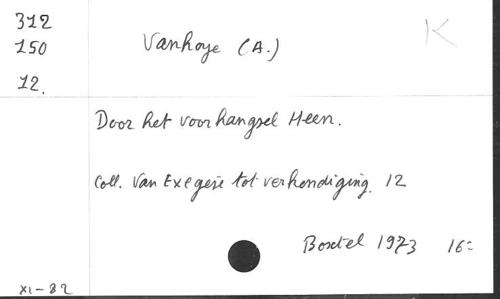 312
150
12.
Vanhoye (A.)
K
Door het voorhangsel Heen.
Coll. Van Exegese tot verkondiging. 12
Boxtel 1973 16=
XI-82